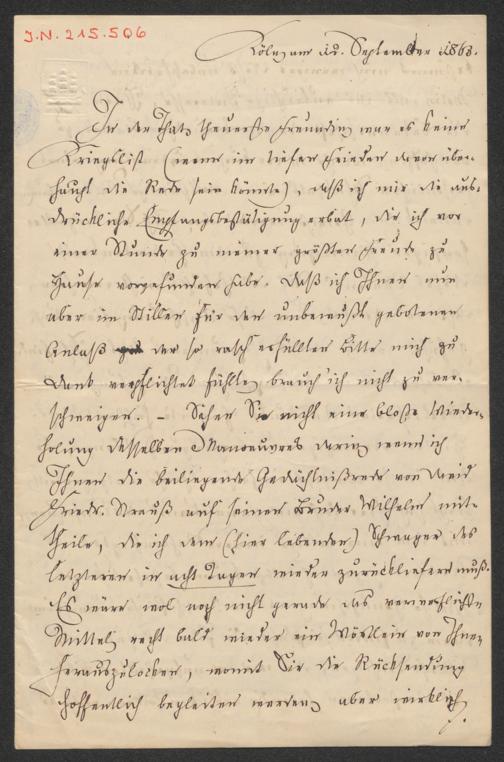 J.N. 215.506
Köln am 12. September 1863.
In der That, theuerste Freundin, war es keine
Kriegslist (wenn im tiefen Frieden davon über-
haupt die Rede sein könnte), daß ich mir die aus-
drückliche Empfangsbestätigung erbat, die ich vor
einer Stunde zu meiner größten Freude zu
Hause vorgefunden habe. Daß ich Ihnen nun
aber im Stillen für den unbewußt gebotenen
Anlaß der so rasch erfüllten Bitte mich zu
Dank verpflichtet fühlte, brauch' ich nicht zu ver-
schweigen. – Sehen Sie nicht eine bloße Wieder-
holung desselben Manoeuvres darin, wenn ich
Ihnen die beiliegende Gedächtnißrede von David
Friedr. Strauß auf seinen Bruder Wilhelm mit-
theile, die ich dem (hier lebenden) Schwager des
letzteren in acht Tagen wieder zurückliefern muß.
Es wäre wol noch nicht gerade das verwerflichste
Mittel, recht bald wieder ein Wörtlein von Ihnen
herauszulocken, womit Sie die Rücksendung
hoffentlich begleiten werden, aber wirklich